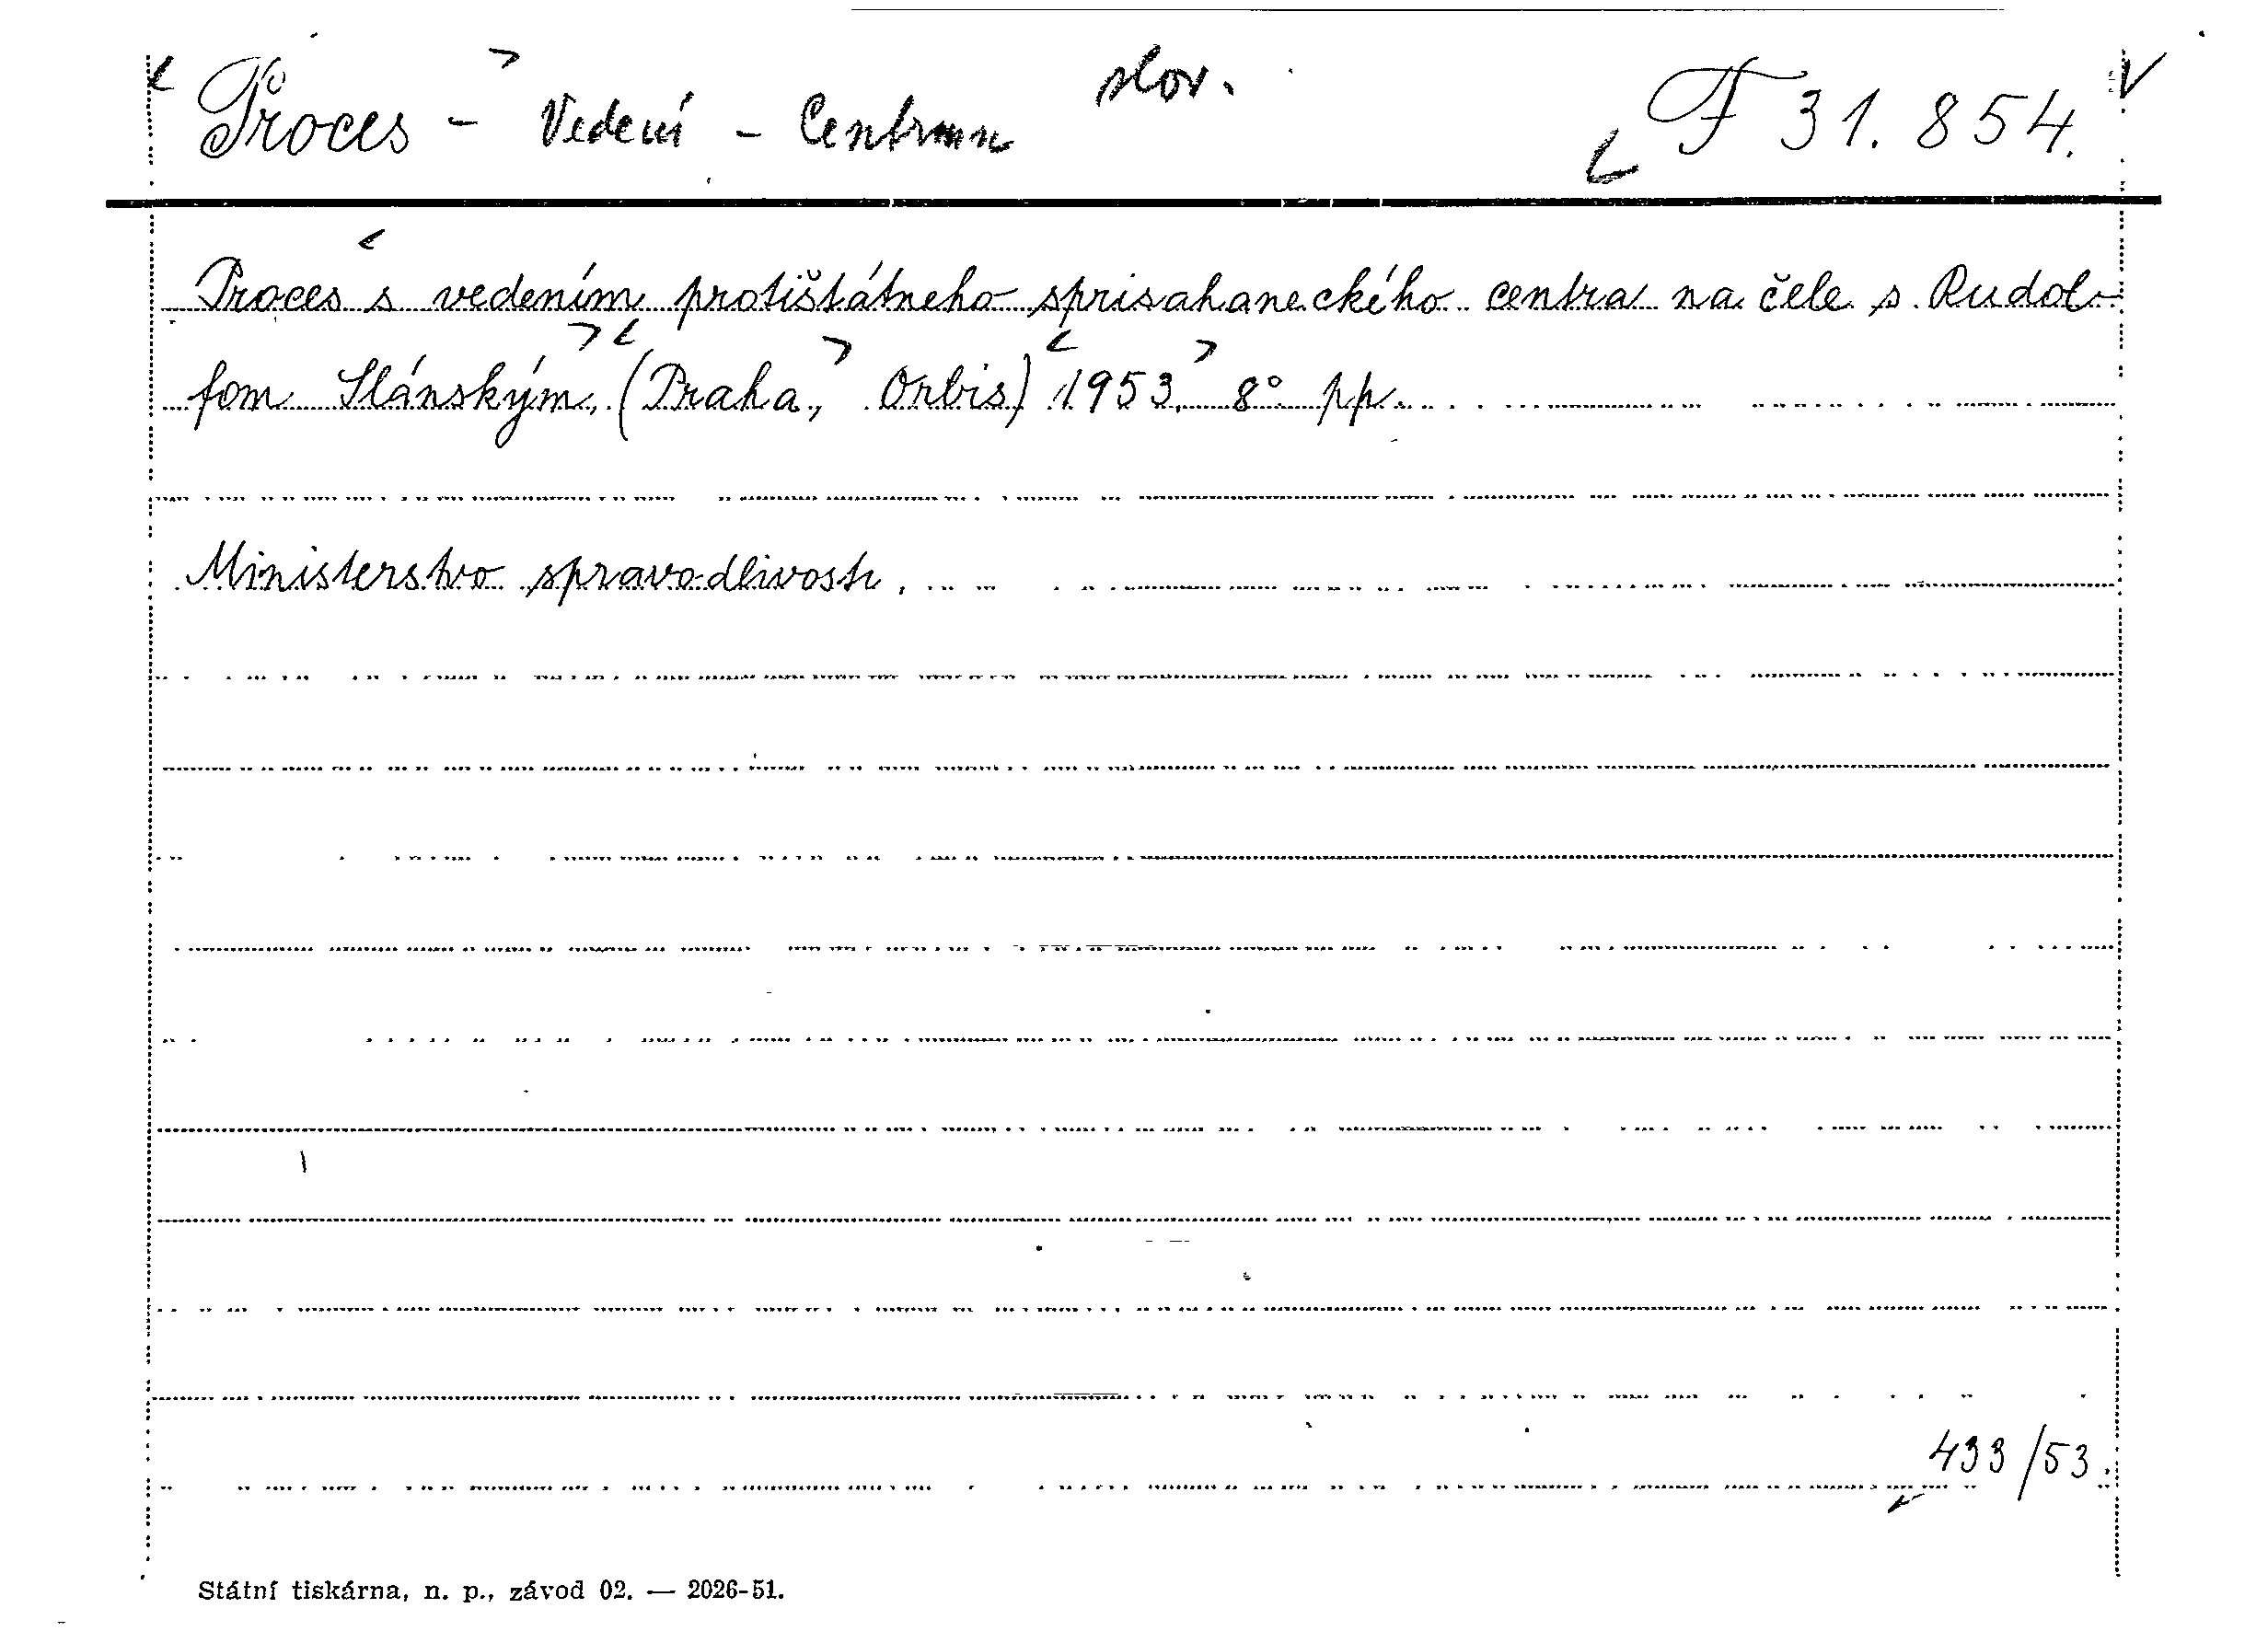 Proces - Vedení - Centrum slov. F 31.854.
Proces s vedením protištátneho sprisahaneckého centra na čele s Rudol-
fom Slánským, (Praha, Orbis) 1953. 8° pp.
Ministerstvo spravodlivosti.
433/53.
Státní tiskárna, n. p., závod 02. — 2026-51.